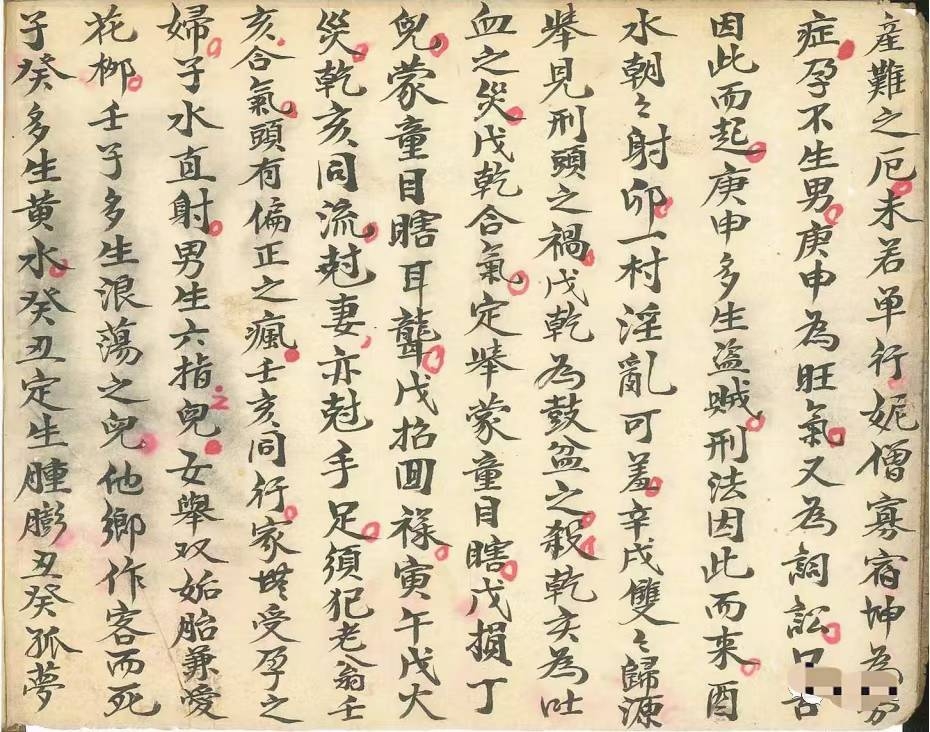 産難之厄未若单行妮僧寡宿坤為
症孕不生男庚申為旺氣又為詞訟口舌
因此而起庚申多生盗贼刑法因此而来酉
水朝々射卯一村淫亂可羞辛戌雙々歸源
犖見刑頭之禍戌乾為鼓盆之殺乾亥為吐
血之災戌乾合氣定犖蒙童目瞎戌損丁
兒蒙童目瞎耳聾戌招囬禄寅午戌火
災乾亥同流尅妻亦尅手足須犯老翁壬
亥合氣頭有偏正之瘋壬亥同行家受孕之
婦子水直射男生六指兒女舉双妬胎兼愛
花柳壬子多生浪蕩之兒他鄉作客而死
子癸多生黄水癸丑定生腫膨丑癸孤夢